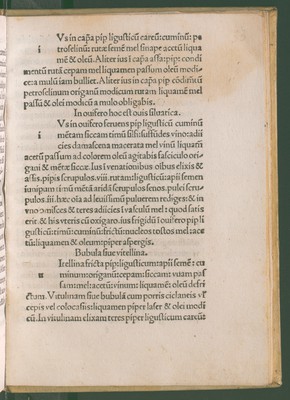 Vs in capra pip ligusticū careū: cuminū: pe
i troselinū rutæ semē mel sinape acetū liqua
mē & oleū. Aliter ius ī capra assa: pip: condi
mentū rutā cepam mel liquamen passum oleū modi-
ce amulū iam bulliet. Aliter ius in capra pip cōdimētū
petroselinum origanū modicum rutam liquamē mel
passū & olei modicū amulo obligabis.
In ouifero hoc est ouis siluatica.
Vs in ouifero feruens pip ligusticū cuminū
i mētam siccam timū silfi: suffūdes vino: adii
cies damascena macerata mel vinū liquamē
acetū passum ad colorem oleū agitabis fasciculo ori-
gani & mētæ siccæ. Ius ī venationibus oībus elixis &
assis. pipis scrupulos. viii. rutam: ligusticū: apii semen
iunipum timū mētā aridā scrupulos senos. pulei scru-
pulos. iii. hæc oīa ad leuissimū puluerem rediges: & in
vno ōmisces & teres adiicies ī vasculū mel: quod satis
erit. & his vteris cū oxigaro. ius frigidū ī ouifero pip li
gusticū: timū: cuminū: frictū: nucleos tostos mel: ace
tū: liquamen & oleum: piper aspergis.
Bubula siue vitellina.
It ellina fricta pip: ligusticum: apii semē: cu
u minum: origanū: cepam: siccam: vuam pas
sam: mel: acetū: vinum: liquamē: oleū defri
ctum. Vitulinam siue bubulā cum porris cidaniis vl
cepis vel colocasiis: liquamen piper laser & olei modi
cū. In vitulinam elixam teres piper ligusticum careū: